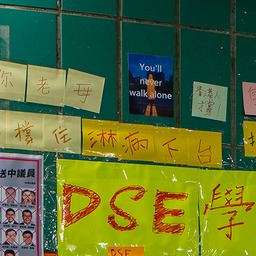 你老母
You'll
never
walk alone
香港人
擋住
淋病下台
送中議員
DSE
學
DSE